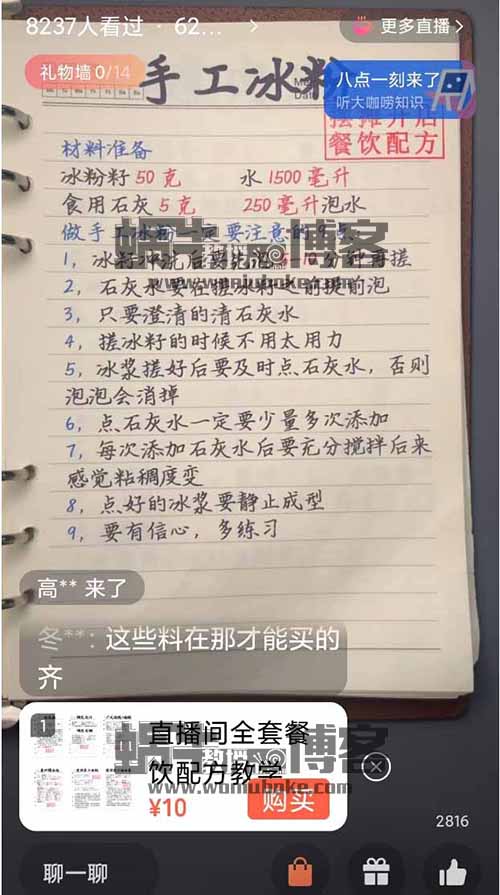 8237人看过 · 62...
更多直播
礼物墙 0/14
手工冰粉
八点一刻来了
听大咖唠知识
摆摊开店
餐饮配方
材料准备
冰粉籽 50 克 水 1500 毫升
食用石灰 5 克 250 毫升泡水
做手工冰粉一定要注意的9点:
1，冰籽冲洗后要先泡5-10分钟再搓
2，石灰水要在搓冰籽之前提前泡
3，只要澄清的清石灰水
4，搓冰籽的时候不用太用力
5，冰浆搓好后要及时点石灰水，否则
泡泡会消掉
6，点石灰水一定要少量多次添加
7，每次添加石灰水后要充分搅拌后来
感觉粘稠度变
8，点好的冰浆要静止成型
9，要有信心，多练习
蜗牛博客
www.womiuboke.com
高** 来了
冬**: 这些料在那才能买的
齐
1
直播间全套餐
饮配方教学
¥10
购买
蜗牛博客
www.womiuboke.com
2816
聊一聊